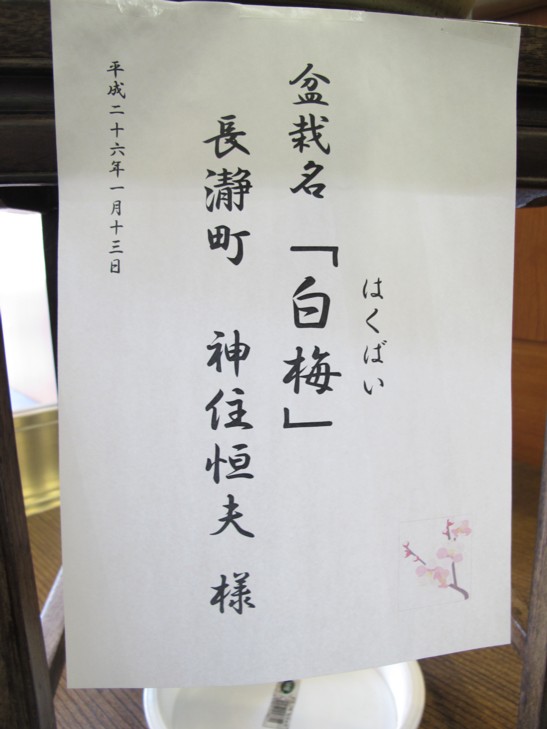 はくばい
盆栽名「白梅」
長瀞町 神住恒夫 様
平成二十六年一月十三日